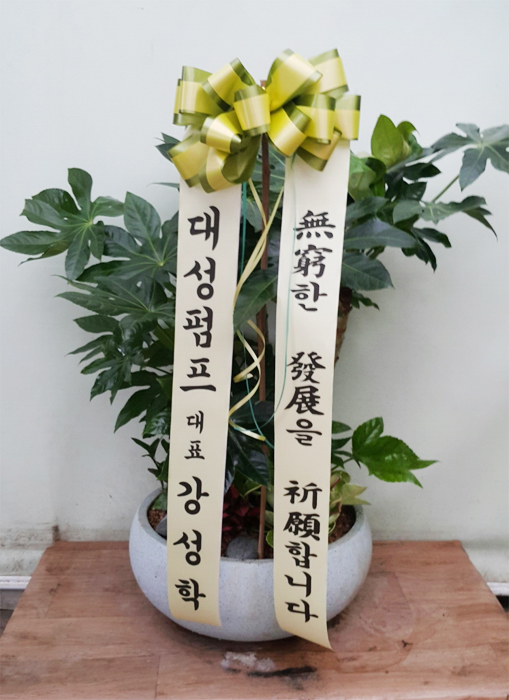 無窮한 發展을 祈願합니다
대성펌프 대표 강성학